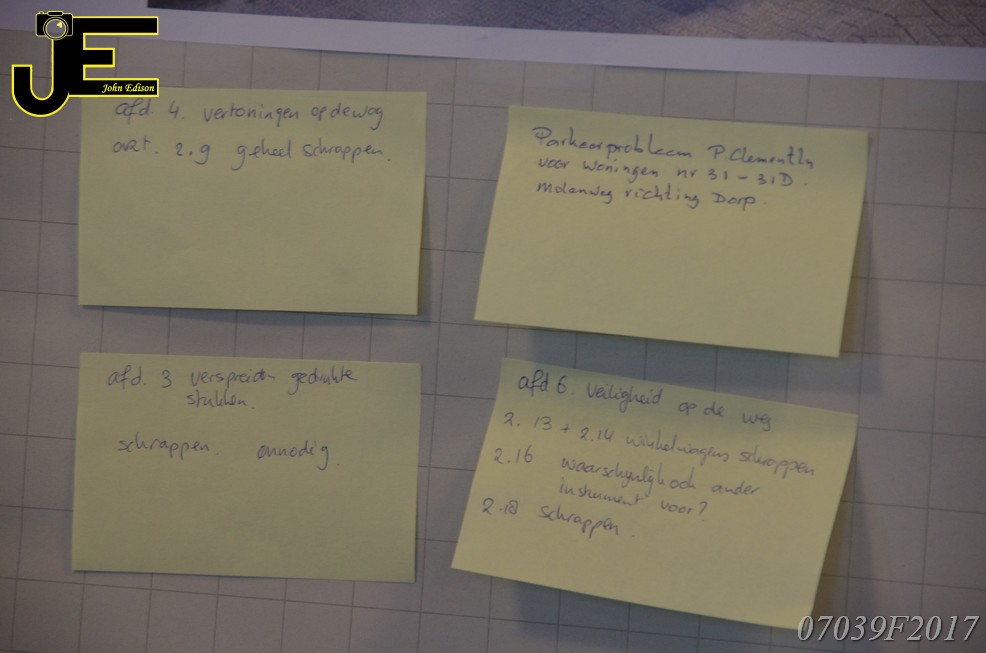 JE
John Edison
afd. 4. vertoningen op de weg
art. 2.9 geheel schrappen.
Parkeerprobleem P. Clementln
voor woningen nr 31 - 31D.
molenweg richting Dorp.
afd. 3 verspreiden gedrukte
stukken.
schrappen. onnodig.
afd 6. Veiligheid op de weg
2.13 + 2.14 winkelwagens schrappen
2.16 waarschynlyk ook ander
instrument voor?
2.18 schrappen.
07039F2017